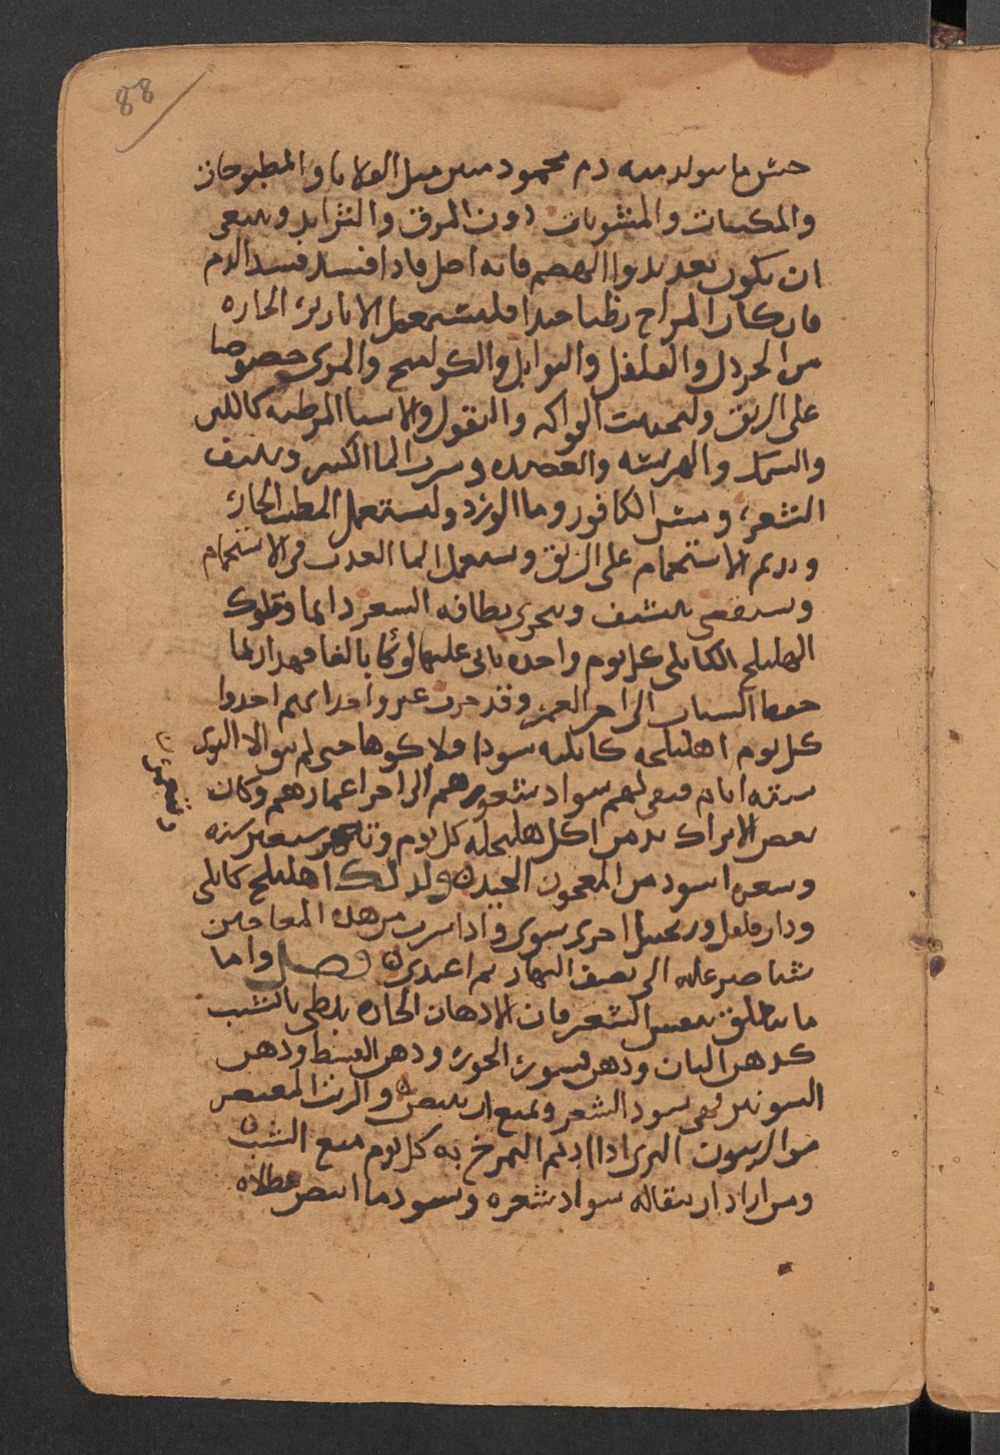 88
حتى ما سولد منه دم محمود متين مثل القلايا والمطبوخات
والمكببات والمشويات دون المرق والثرايد وينبغى
ان يكون تعديله بواالهضم فانه اصل فاذا فسد فسد الدم
فان كان المزاج رطبا جدا فليستعمل الابازير الحاره
من الخردل والفلفل والتوابل والكواميخ والمرى خصوصا
على الريق وليجتنب الفواكه والبقول والاشيا المرطبه كاللبن
والسمك والهريسه والعصيده وشرب الما الكثير وينتف
الشعر ومس الكافور وما الورد وليستعمل الطيب الحار
ويديم الاستحمام على الريق ويستعمل الما العذب فى الاستحمام
ويستقصى التنشف ويتحرى نظافه الشعر دايما ويلوك
الهليلج الكابلى كل يوم واحده ياتى عليها لوكا بالغا فهذا ربما
حفظ الشباب الى اخر العمر وقد جرب غير واحد انهم اخذوا
كل يوم اهليلجه كابليه سودا ولاكوها حتى لم يبق الا النوى
سنه ايام فبقى لهم سواد شعورهم الى اخر اعمارهم وكان
بعض الاتراك يدمن اكل هليلجه كل يوم وتا سبعين سنه
وشعره اسود من المعجون الجيد ولذلك اهليلج كابلى
ودار فلفل وزنجبيل اجزى سوى واذا شرب من هذه المعاجين
شيا صبر عليه الى نصف النهار ثم اغتذى فصل واما
ما يتعلق بنفس الشعر فان الادهان الحاره تبطى بالشيب
كدهن البان ودهن قشور الجوز ودهن القسط ودهن
الشونيز فهى تسود الشعر وتمنع ان يبيض والزيت المعتصر
من الزيتون البرى اذا اديم التمرخ به كل يوم منع الشيب
ومن اراد ان يتقاله سواد شعره ويسود ما ابيض